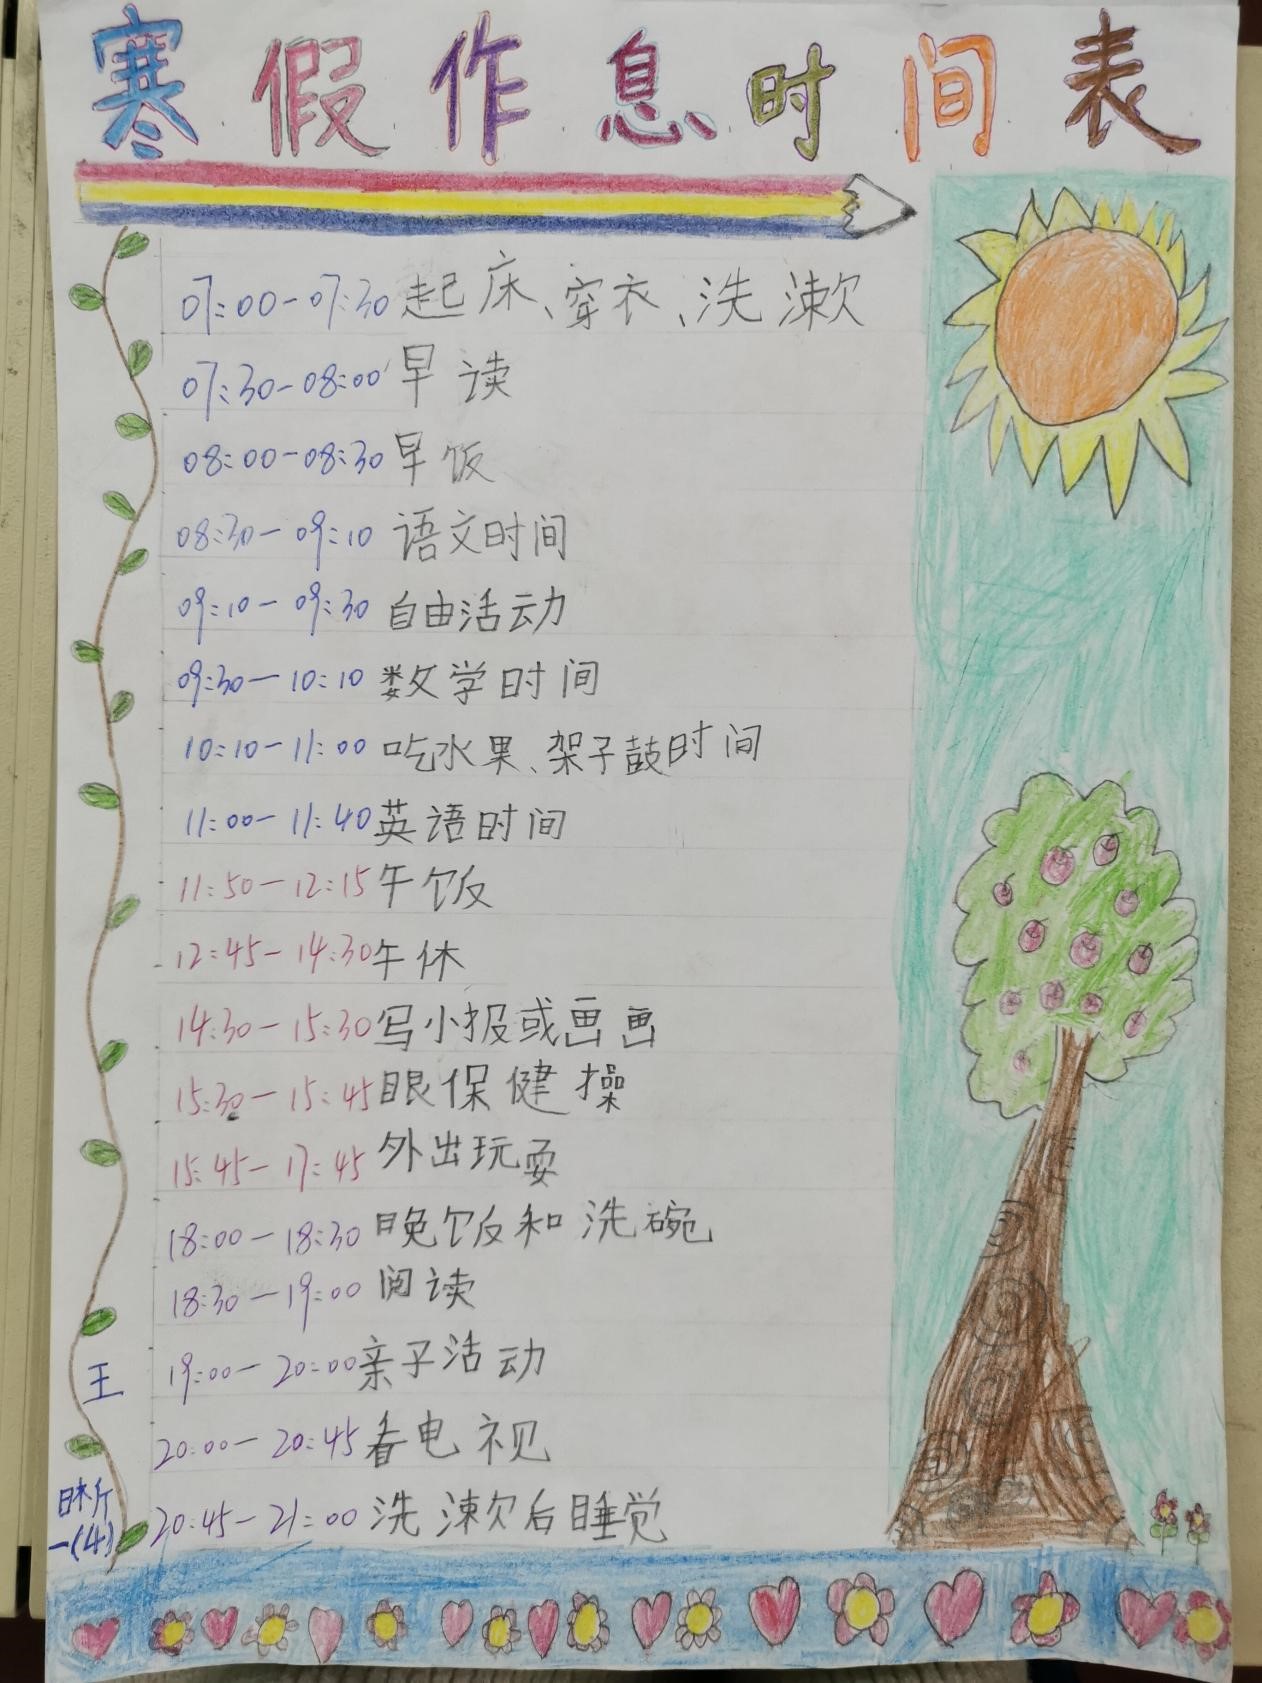 寒假作息时间表
07:00-07:30 起床、穿衣、洗漱
07:30-08:00 早读
08:00-08:30 早饭
08:30-09:10 语文时间
09:10-09:30 自由活动
09:30-10:10 数学时间
10:10-11:00 吃水果、架子鼓时间
11:00-11:40 英语时间
11:50-12:15 午饭
12:45-14:30 午休
14:30-15:30 写小报或画画
15:30-15:45 眼保健操
15:45-17:45 外出玩耍
18:00-18:30 晚饭和洗碗
18:30-19:00 阅读
19:00-20:00 亲子活动
20:00-20:45 看电视
20:45-21:00 洗漱后睡觉
王
一(4)